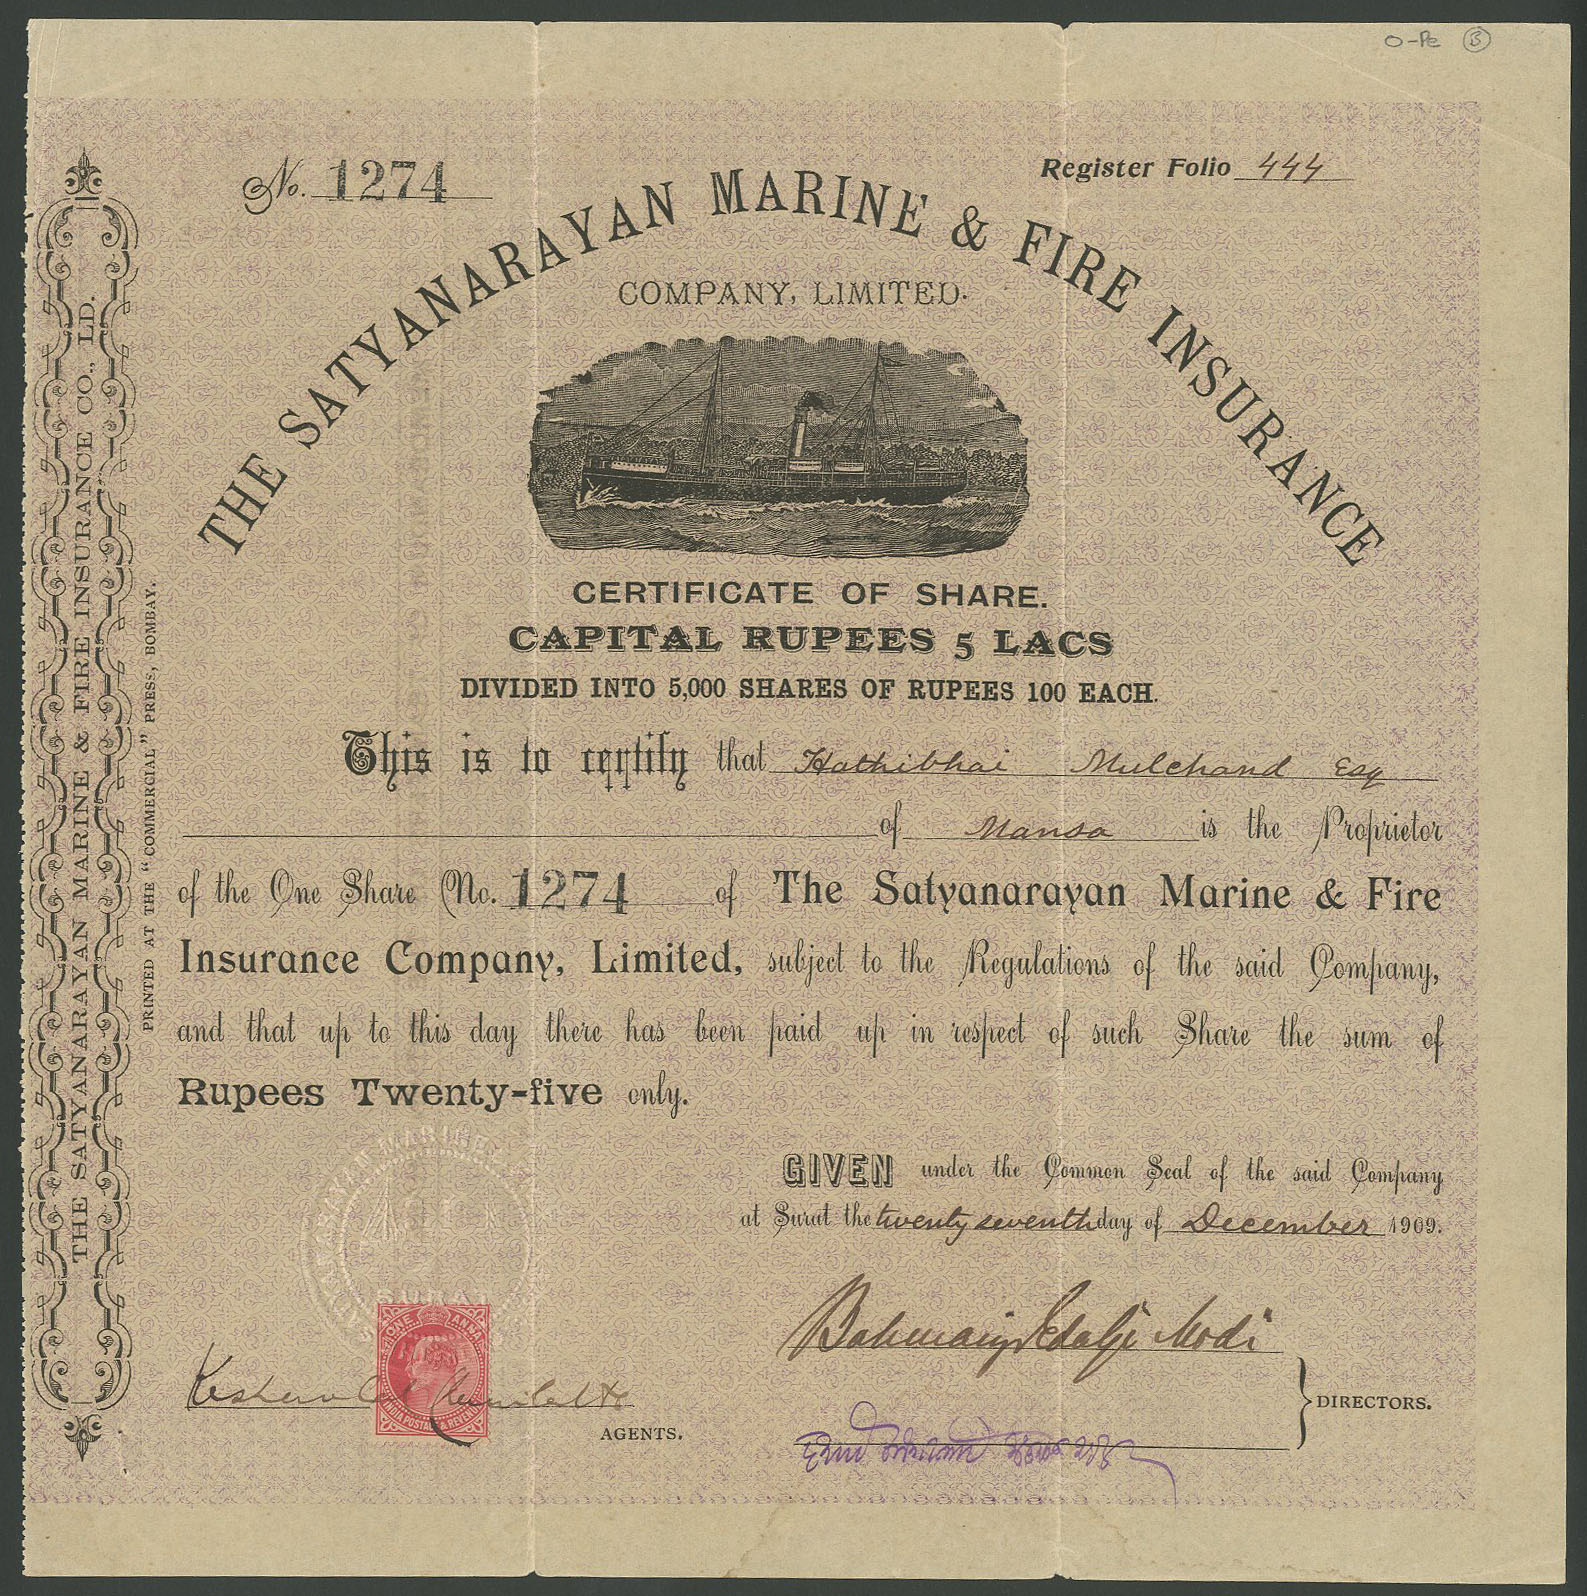 O-Pe B
No. 1274
Register Folio 444
THE SATYANARAYAN MARINE & FIRE INSURANCE
COMPANY, LIMITED.
CERTIFICATE OF SHARE.
CAPITAL RUPEES 5 LACS
DIVIDED INTO 5,000 SHARES OF RUPEES 100 EACH.
This is to certify that Hathibhai Mulchand Esq
of Mansa is the Proprietor
of the One Share (No. 1274 of The Satyanarayan Marine & Fire
Insurance Company, Limited, subject to the Regulations of the said Company,
and that up to this day there has been paid up in respect of such Share the sum of
Rupees Twenty-five only.
GIVEN under the Common Seal of the said Company
at Surat the twenty seventh day of December 1909.
Edalji Modi
DIRECTORS.
AGENTS.
ONE ANNA
INDIA POSTAGE & REVENUE
SURAT
THE SATYANARAYAN MARINE & FIRE INSURANCE CO., LD.
PRINTED AT THE "COMMERCIAL" PRESS, BOMBAY.